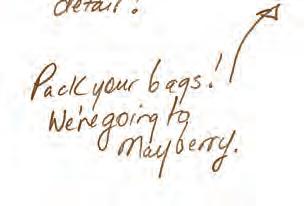 detail!
Pack your bags!
We're going to
Mayberry.